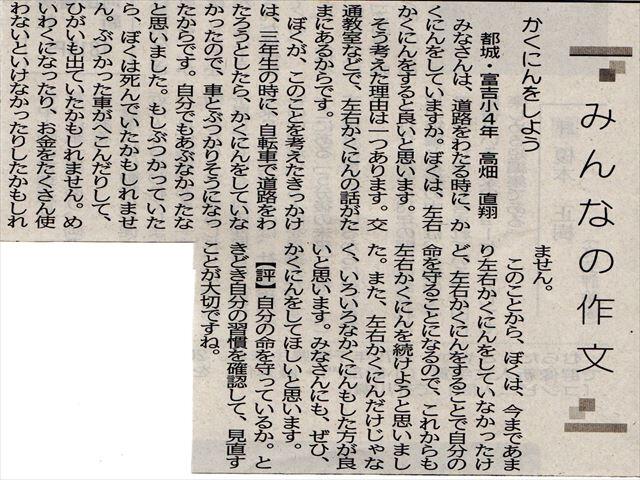 みんなの作文
かくにんをしよう
都城・富吉小4年　高畑　直翔
みなさんは、道路をわたる時に、か
くにんをしていますか。ぼくは、左右
かくにんをすると良いと思います。
そう考えた理由は一つあります。交
通教室などで、左右かくにんの話がた
まにあるからです。
ぼくが、このことを考えたきっかけ
は、三年生の時に、自転車で道路をわ
たろうとしたら、かくにんをしていな
かったので、車とぶつかりそうになっ
たからです。自分でもあぶなかったな
と思いました。もしぶつかっていた
ら、ぼくは死んでいたかもしれませ
ん。ぶつかった車がへこんだりして、
ひがいも出ていたかもしれません。め
いわくになったり、お金をたくさん使
わないといけなかったりしたかもしれ
ません。
このことから、ぼくは、今まであま
り左右かくにんをしていなかったけ
ど、左右かくにんをすることで自分の
命を守ることになるので、これからも
左右かくにんを続けようと思いまし
た。また、左右かくにんだけじゃな
く、いろいろなかくにんもした方が良
いと思います。みなさんにも、ぜひ、
かくにんをしてほしいと思います。
【評】自分の命を守っているか。と
きどき自分の習慣を確認して、見直す
ことが大切ですね。